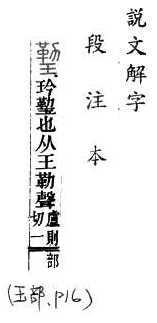 說文解字
段注本
玪也从王勒聲盧則切一部
(玉部、p16)